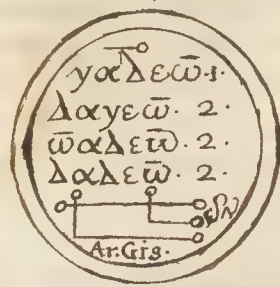 γαΔεω̄·1·
Δαγεω̄·2·
ω̄αΔεω̄·2·
ΔαΔεω̄·2·
Ar.Gis·